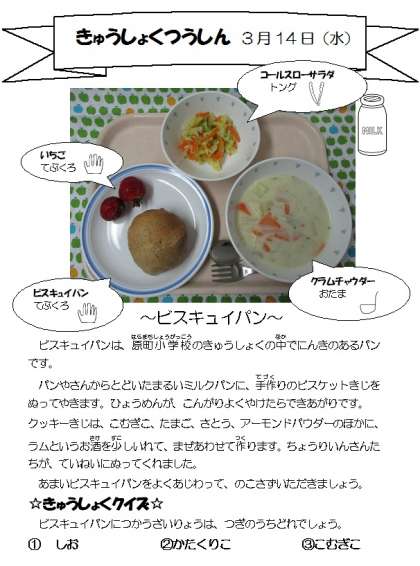 きゅうしょくつうしん　３月１４日（水）
コールスローサラダ
トング
MILK
いちご
てぶくろ
ビスキュイパン
てぶくろ
クラムチャウダー
おたま
～ビスキュイパン～
ビスキュイパンは、原町小学校のきゅうしょくの中でにんきのあるパン
です。
パンやさんからとどいたまるいミルクパンに、手作りのビスケットきじを
ぬってやきます。ひょうめんが、こんがりよくやけたらできあがりです。
クッキーきじは、こむぎこ、たまご、さとう、アーモンドパウダーのほかに、
ラムというお酒を少しいれて、まぜあわせて作ります。ちょうりいんさんた
ちが、ていねいにぬってくれました。
あまいビスキュイパンをよくあじわって、のこさずいただきましょう。
☆きゅうしょくクイズ☆
ビスキュイパンにつかうざいりょうは、つぎのうちどれでしょう。
①　しお　②かたくりこ　③こむぎこ